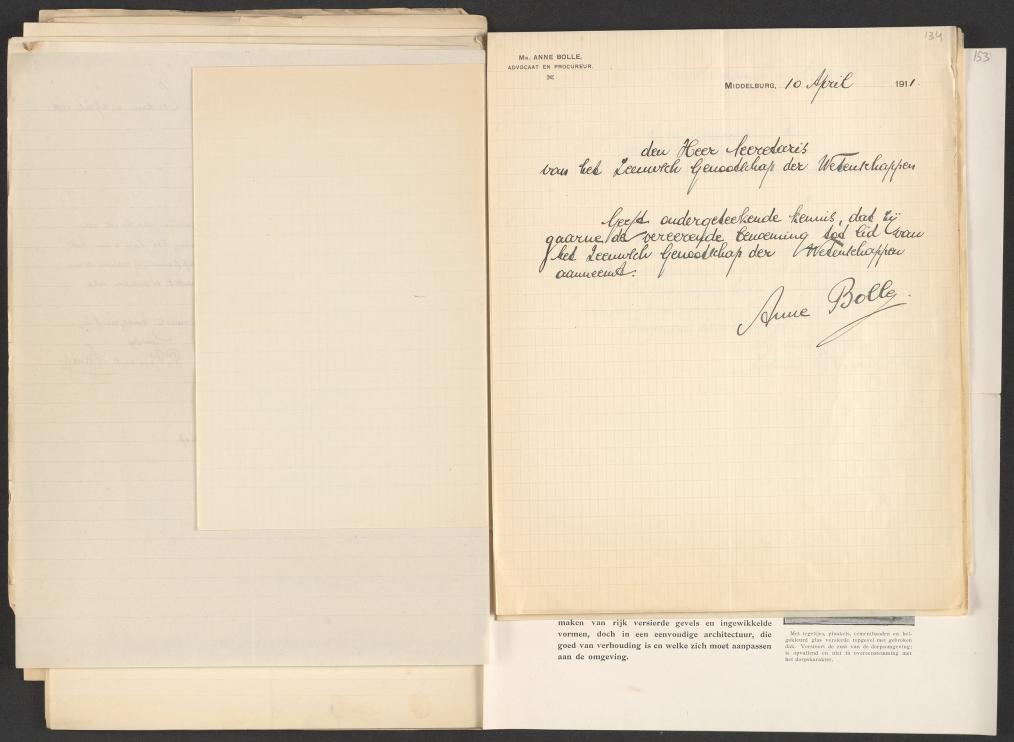 134
153
Mr. ANNE BOLLE,
ADVOCAAT EN PROCUREUR.
MIDDELBURG, 10 April 1911.
den Heer Secretaris
van het Zeeuwsch Genootschap der Wetenschappen
Geeft ondergeteekende kennis, dat zij
gaarne de vereerende benoeming tot lid van
het Zeeuwsch Genootschap der Wetenschappen
aanneemt.
Anne Bolle.
maken van rijk versierde gevels en ingewikkelde
vormen, doch in een eenvoudige architectuur, die
goed van verhouding is en welke zich moet aanpassen
aan de omgeving.
Met tegeltjes, plaakels, cementbanden en bel-
gekleurd glas versierde topgevel met gebroken
dak. Verstoort de rust van de dorpsomgeving;
is opvallend en niet in overeenstemming met
het dorpskarakter.